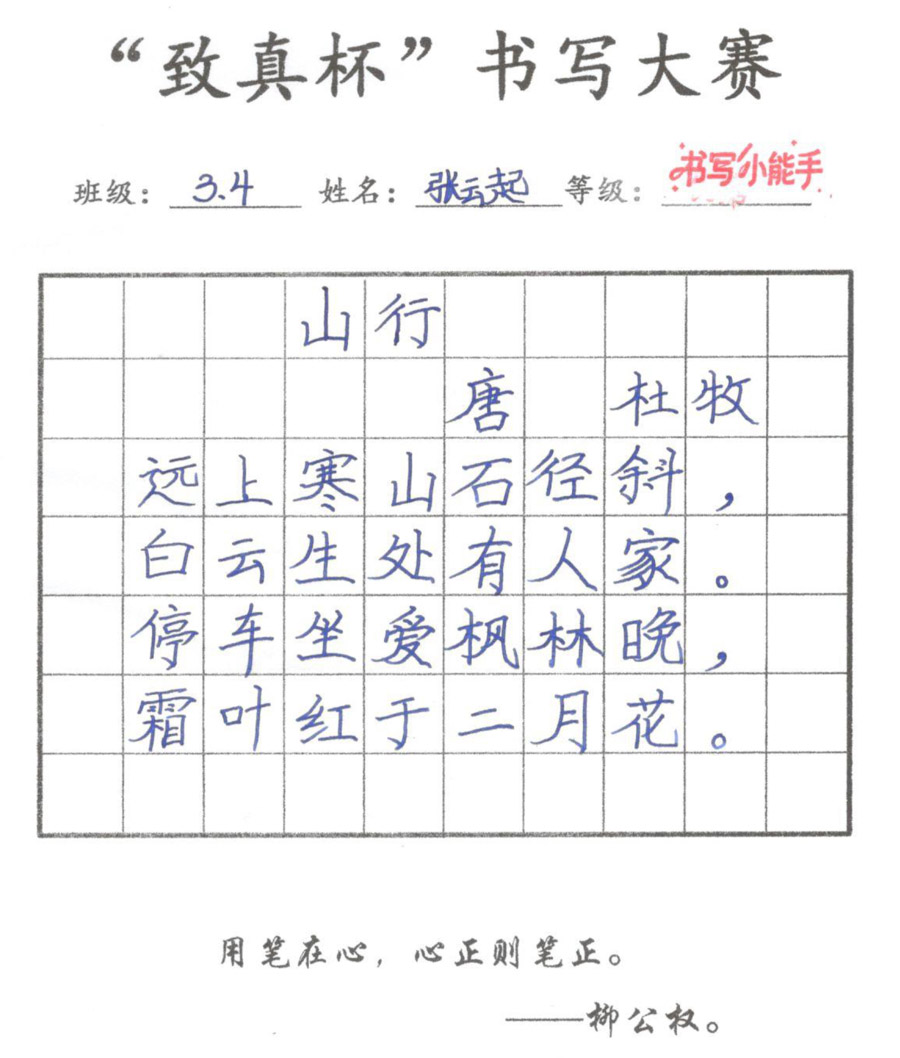 “致真杯”书写大赛
班级：3.4 姓名：张云起 等级：书写小能手
山行
唐 杜牧
远上寒山石径斜，
白云生处有人家。
停车坐爱枫林晚，
霜叶红于二月花。
用笔在心，心正则笔正。
——柳公权。